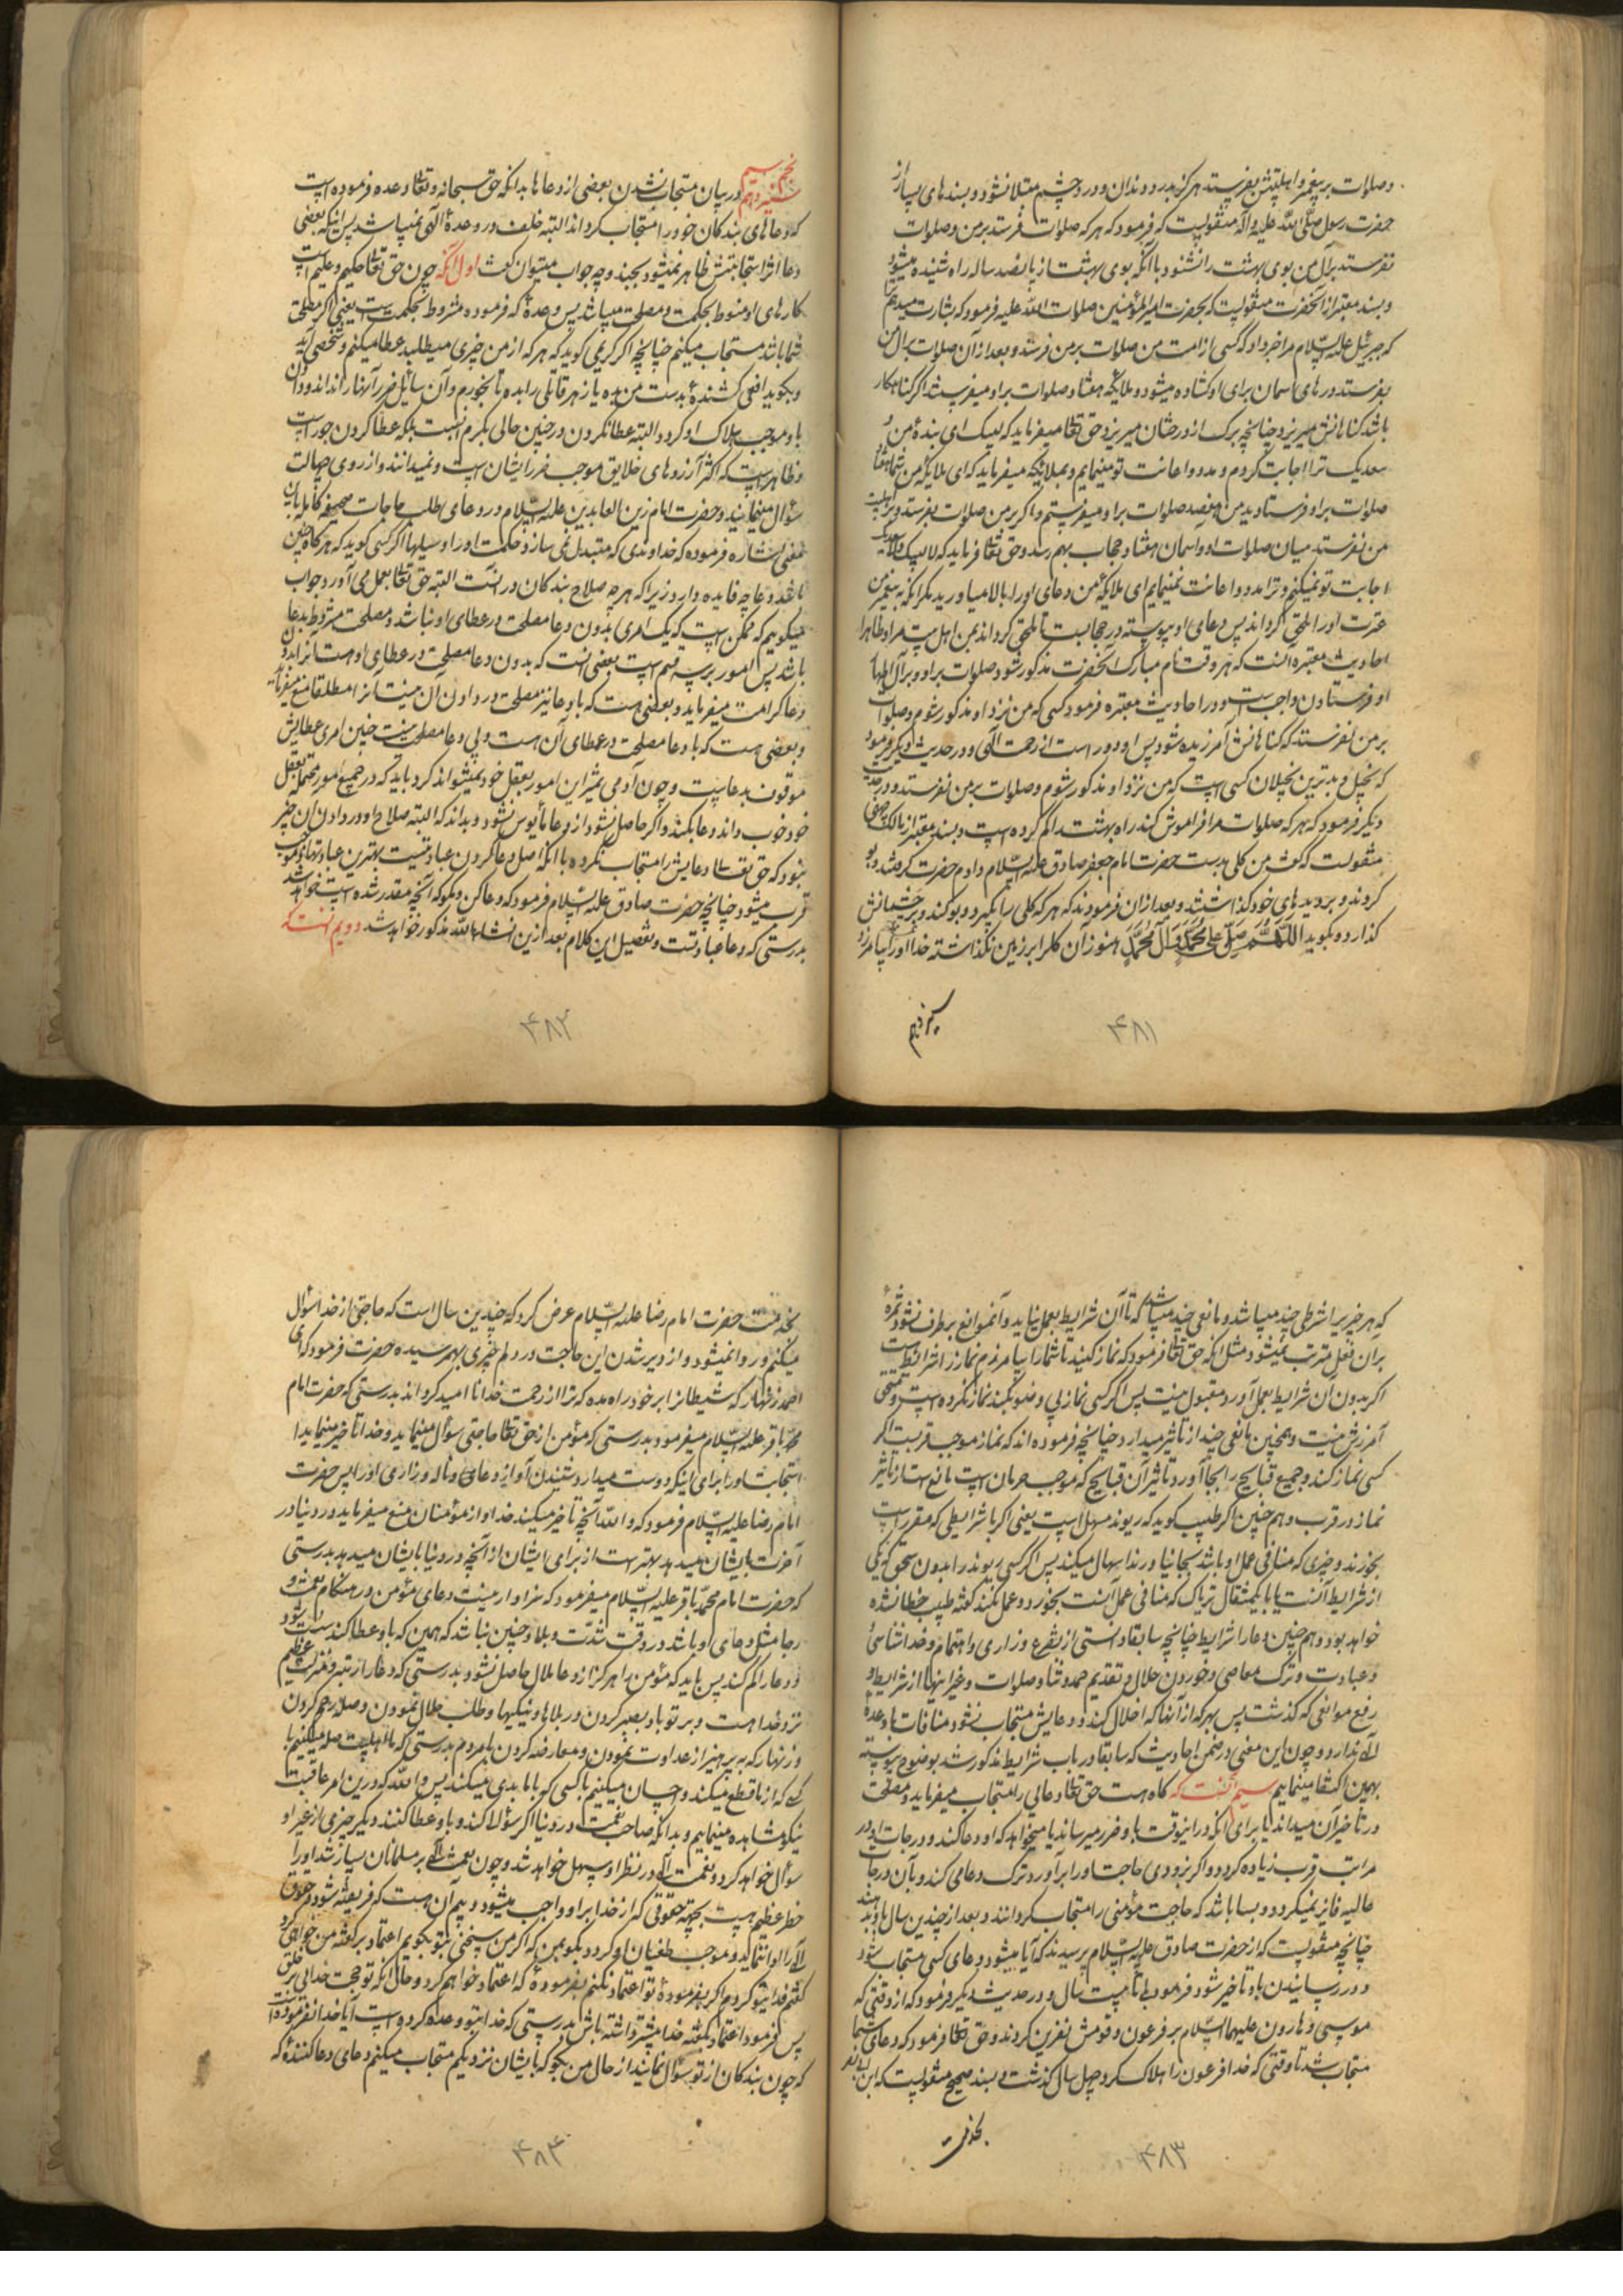 و صلوات بر پیغمبر و اهلبیتش بفرستد هرگز بدرد دندان و درد چشم مبتلا نشود و بسندهای بسیار از
حضرت رسول صلی الله علیه و آله منقولست که فرمود که هر که صلوات فرستد بر من و صلوات
نفرستد بر آل من بوی بهشت را نشنود با آنکه بوی بهشت از پانصد ساله راه شنیده میشود
و بسند معتبر از آنحضرت منقولست که بحضرت امیرالمؤمنین صلوات الله علیه فرمود که بشارت میدهم
که جبرئیل علیه السلام مرا خبر داد که کسی از امت من صلوات بر من فرستد و بعد از آن صلوات بر آل من
بفرستد درهای آسمان برای او گشاده میشود و ملائکه هفتاد صلوات بر او میفرستند اگر گناهکار
باشد گناهانش میریزد چنانچه برک از درختان میریزد و حق تعالی میفرماید که لبیک ای بنده من و
سعدیک ترا اجابت کردم و مدد و اعانت تو مینمایم و بملائکه میفرماید که ای ملائکه من شما هفتاد
صلوات بر او فرستادید من هفتصد صلوات بر او میفرستم و اگر بر من صلوات بفرستد و بر اهلبیت
من نفرستد میان صلوات او و آسمان هفتاد حجاب بهم رسد و حق تعالی فرماید که لا لبیک و لا سعدیک
اجابت تو نمیکنم و ترا مدد و اعانت نمینمایم ای ملائکه من دعای او را بالا میاورید مگر آنکه به پیغمبر من
عترت او را ملحق گرداند پس دعای او پیوسته در حجابست تا ملحق گرداند بمن اهل بیت مرا و ظاهر
احادیث معتبره آنست که هر وقت نام مبارک آنحضرت مذکور شود صلوات بر او و بر آل اطهار
او فرستادن واجبست و در احادیث معتبره فرمود کسی که من نزد او مذکور شوم و صلوات
بر من نفرستد که گناهانش آمرزیده شود پس او دور است از رحمت الهی و در حدیث دیگر فرمود
که بخیل و بدترین بخیلان کسی است که من نزد او مذکور شوم و صلوات بر من نفرستد و در حدیث
دیگر فرمود که هر که صلوات مرا فراموش کند راه بهشت را گم کرده است و بسند معتبر از مالک جهنی
منقولست که گفت من گلی بدست حضرت امام جعفر صادق علیه السلام دادم حضرت گرفتند و بو
کردند و بر دیدهای خود گذاشتند و بعد ازان فرمودند که هر که گلی را بگیرد و بو کند و بر چشمانش
گذارد و بگوید اللهم صل علی محمد و آل محمد هنوز آن گل را بر زمین نگذاشته خدا او را بیامرزد
۴۸۱
نجم سیم
در بیان مستجاب نشدن بعضی از دعاها بدانکه حق سبحانه و تعالی وعده فرموده است
که دعاهای بندگان خود را مستجاب گرداند البته خلف در وعدهٔ الهی نمیباشد پس اینکه بعضی
دعا اثر استجابتش ظاهر نمیشود بچند وجه جواب میتوان گفت اول آنکه چون حق تعالی حکیم و علیم است
کارهای او منوط بحکمت و مصلحت میباشد پس وعدهٔ که فرموده مشروط بحکمت است یعنی اگر مصلحت
شما باشد مستجاب میکنم چنانچه اگر کریمی گوید که هر که از من چیزی میطلبد عطا میکنم و شخصی آید
و بگوید افعی کشندهٔ بدست من بده یا زهر قاتلی را بده تا بخورم و آن سائل ضرر آنها را نداند و دادن
باو موجب هلاک او گردد البته عطا نکردن در چنین حالی بکرم انسبست بلکه عطا کردن جور است
و ظاهر است که اکثر آرزوهای خلایق موجب ضرر ایشان است و نمیدانند و از روی جهالت
سؤال مینمایند و حضرت امام زین العابدین علیه السلام در دعای طلب حاجات صحیفه کامله باین
معنی اشاره فرموده که خداوندی که متبدل نمی سازد حکمت او را وسیلها اگر کسی گوید که هر گاه چنین
باشد دعا چه فایده دارد زیرا که هر چه صلاح بندگان در آنست البته حق تعالی بعمل می آورد جواب
میگوییم که ممکن است که یک امری بدون دعا مصلحت در عطای او نباشد و مصلحت مشروط بدعا
باشد پس امور بر سه قسم است بعضی آنست که بدون دعا مصلحت در عطای او هست آنرا بدون
دعا کرامت میفرماید و بعضی هست که با دعا نیز مصلحت در دادن آن نیست آنرا مطلقا منع میفرماید
و بعضی هست که با دعا مصلحت در عطای آن هست و بی دعا مصلحت نیست چنین امری عطایش
موقوف بدعاست و چون آدمی تمیز این امور بعقل خود نمیتواند کرد باید که در جمیع امور محتمله بعقل
خود خوب داند دعا بکند و اگر حاصل نشود از دعا مأیوس نشود و بداند که البته صلاح او در دادن آن چیز
نبود که حق تعالی دعایش را مستجاب نکرده با آنکه اصل دعا کردن عبادتیست بهترین عبادتها و موجب
قرب میشود چنانچه حضرت صادق علیه السلام فرمود که دعا کن و مگو که آنچه مقدر شده است خواهد شد
بدرستی که دعا عبادتست و تفصیل این کلام بعد ازین انشاء الله مذکور خواهد شد دویم آنست که
۴۸۲
که هر چیز را شرطی چند میباشد و مانعی چند میباشد که تا آن شرایط بعمل نیاید و آنموانع برطرف نشود ثمرهٔ
بران فعل مترتب نمیشود مثل آنکه حق تعالی فرمود که نماز کنید تا شما را بیامرزم نماز را شرائط است
اگر بدون آن شرایط بعمل آورد مقبول نیست پس اگر کسی نماز بی وضو بکند نماز نکرده است و مستحق
آمرزش نیست و همچنین مانعی چند از تاثیر میدارد چنانچه فرموده اند که نماز موجب قربست اگر
کسی نماز کند و جمیع قبایح را بجا آورد تاثیر آن قبایح که موجب حرمان است مانع است از تاثیر
نماز در قرب و هم چنین اگر طبیب گوید که ریوند مسهل است یعنی اگر با شرایطی که مقرر است
بخورند و چیزی که منافی عمل او باشد بجا نیاورند اسهال میکند پس اگر کسی ریوند را بدون سحق که یکی
از شرایط آنست یا با یکمثقال تریاک که منافی عمل آنست بخورد و عمل نکند گفته طبیب خطا نشده
خواهد بود و هم چنین دعا را شرایط چنانچه سابقا دانستی از تضرع و زاری و اهتمام و خداشناسی
و عبادت و ترک معاصی و خوردن حلال و تقدیم حمد و ثنا و صلوات و غیر اینها از شرایط و
رفع موانعی که گذشت پس بهر که از آنها که اخلال کند و دعایش مستجاب نشود منافات با وعدهٔ
الهی ندارد و چون این معنی در ضمن احادیث که سابقا در باب شرایط مذکور شد بوضوح پیوسته
بهمین اکتفا مینماییم سیم آنست که گاه هست حق تعالی دعایی را مستجاب میفرماید و مصلحت
در تاخیر آن میداند یا برای آنکه در اینوقت باو ضرر میرساند یا میخواهد که او دعا کند و درجات او در
مراتب قرب زیاده گردد و اگر بزودی حاجت او را برآورد ترک دعا می کند و بآن درجات
عالیه فایز نمیگردد و بسا باشد که حاجت مؤمنی را مستجاب گردانند و بعد از چندین سال باو بدهند
چنانچه منقولست که از حضرت صادق علیه السلام پرسیدند که آیا میشود دعای کسی مستجاب شود
و در رسانیدن باو تاخیر شود فرمود بلی تا بیست سال و در حدیث دیگر فرمود که از وقتی که
موسی و هارون علیهما السلام بر فرعون و قومش نفرین کردند و حق تعالی فرمود که دعای شما
مستجاب شد تا وقتی که خدا فرعون را هلاک کرد چهل سال گذشت و بسند صحیح منقولست که ابن ابی نصر
بخدمت
۴۸۳
بخدمت حضرت امام رضا علیه السلام عرض کرد که چندین سال است که حاجتی از خدا سؤال
میکنم و روا نمیشود و از دیر شدن این حاجت در دلم چیزی بهم رسیده حضرت فرمود که ای
احمد زنهار که شیطانرا بر خود راه مده که ترا از رحمت خدا نا امید گرداند بدرستی که حضرت امام
محمد باقر علیه السلام میفرمود بدرستی که مؤمن از حق تعالی حاجتی سؤال مینماید و خدا تاخیر مینماید
استجابت او را برای اینکه دوست میدارد شنیدن آواز دعا و ناله و زاری او را پس حضرت
امام رضا علیه السلام فرمود که والله آنچه تاخیر میکند خدا و از مؤمنان منع میفرماید در دنیا و در
آخرت بایشان میدهد بهتر است از برای ایشان از آنچه در دنیا بایشان میدهد بدرستی
که حضرت امام محمد باقر علیه السلام میفرمود که سزاوار نیست دعای مؤمن در هنگام نعمت و
رخا مثل دعای او باشد در وقت شدت و بلا و چنین نباشد که همین که باو عطا کنند سست شود
و دعا را کم کند پس باید که مؤمن را هرگز از دعا ملال حاصل نشود بدرستی که دعا را رتبه و منزلت عظیم
نزد خدا هست و بر تو باد بصبر کردن در بلاها و نیکیها و طلب حلال نمودن و صله رحم کردن
و زنهار که به پرهیز از عداوت نمودن و معارضه کردن با مردم بدرستی که ما اهلبیت صله میکنیم با
کسی که از ما قطع میکند و احسان میکنیم با کسی که با ما بدی میکند پس والله که درین امر عاقبت
نیکو مشاهده مینماییم و بدانکه صاحب نعمت در دنیا اگر سؤال کند و باو عطا کنند دیگر چیزی از غیر او
سؤال خواهد کرد و نعمت الهی در نظر او سهل خواهد شد و چون نعمت الهی بر مسلمانان بسیار شد او را
خطر عظیم هست بجهته حقوقی که از خدا بر او واجب میشود و بیم آن هست که فریفته شود و حقوق
الهی را ادا ننماید و موجب طغیان او گردد بگو بمن که اگر من سخنی بتو بگویم اعتماد بر گفته من خواهی کرد
گفتم فدای تو گردم اگر بفرمودهٔ تو اعتماد نکنم بفرمودهٔ که اعتماد خواهم کرد و حال آنکه تو حجت خدایی بر خلق
پس فرمود اعتماد بگفته خدا بیشتر داشته باش بدرستی که خدا بتو وعده کرده است آیا خدا نفرموده است
که چون بندگان از تو سؤال نمایند از حال من بگو که بایشان نزدیکم مستجاب میکنم دعای دعا کننده که
۴۸۴